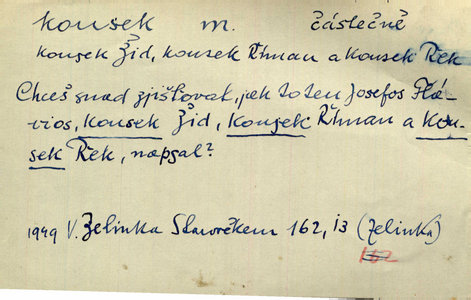 kousek m. částečně
kousek Žid, kousek Říman a kousek Řek
Chceš snad zjišťovat, jak to ten Josefos Flá-
vios, kousek Žid, kousek Říman a kou-
sek Řek, napsal?
1949 V. Zelinka Starověkem 162, i3 (Zelinka)
162